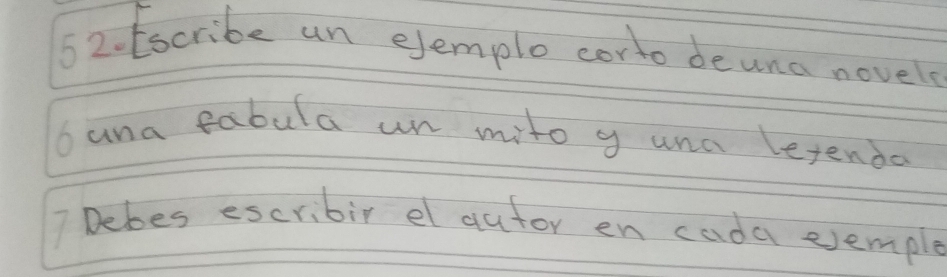 52. Escribe un ejemplo corto de una novela
6 una fabula un mito y una leyenda
7 Debes escribir el autor en cada ejemplo